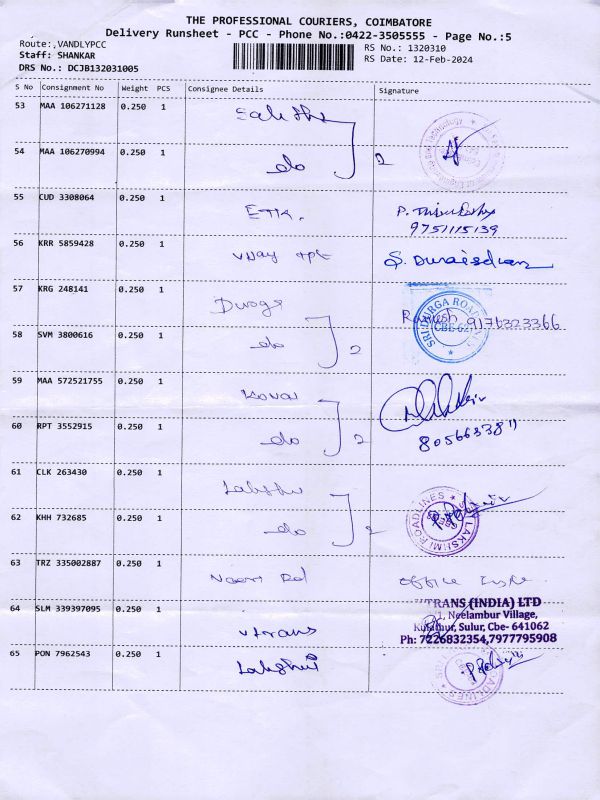 THE PROFESSIONAL COURIERS, COIMBATORE
Delivery Runsheet - PCC - Phone No.:0422-3505555 - Page No.:5
Route:,VANDLYPCC
RS No.: 1320310
Staff: SHANKAR
RS Date: 12-Feb-2024
DRS No.: DCJB132031005
S No Consignment No Weight PCS Consignee Details Signature
53 MAA 106271128 0.250 1
54 MAA 106270994 0.250 1 do 2
55 CUD 3308064 0.250 1
9751115139
56 KRR 5859428 0.250 1 vnay tpt S. Duraisamy
57 KRG 248141 0.250 1 Durga Ramesh 9176323366
SRI DURGA ROADLINES
CBE-62
58 SVM 3800616 0.250 1 do 2
59 MAA 572521755 0.250 1 Kovai
60 RPT 3552915 0.250 1 do 2
61 CLK 263430 0.250 1 Lakshmi
62 KHH 732685 0.250 1 do 2
LAKSHMI ROADLINES
63 TRZ 335002887 0.250 1 Office
TRANS (INDIA) LTD
64 SLM 339397095 0.250 1 vtrans
Neelambur Village,
Sulur, Cbe- 641062
Ph: 7226832354,7977795908
65 PON 7962543 0.250 1 Lakshmi